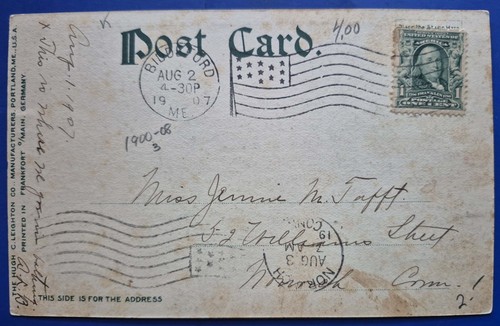 Post Card.
4.00
BIDDEFORD
AUG 2
4-30P
1907
ME.
UNITED STATES
Aug 1. 1907
x This is where
1900-08
3
Miss Jennie M. Tafft.
Williams Street
Norwich Conn.
2.
NORWICH
AUG 3
7 AM
19
CONN.
THE HUGH C. LEIGHTON CO. MANUFACTURERS PORTLAND, ME., U.S.A.
PRINTED IN FRANKFORT O/MAIN, GERMANY
THIS SIDE IS FOR THE ADDRESS